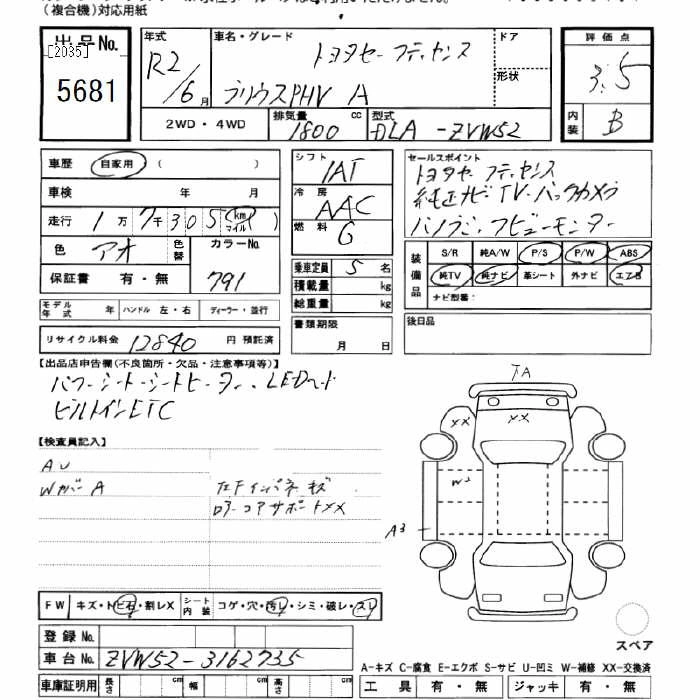 (複合機)対応用紙
出品No.
[2035]
5681
年式 R2/6月
車名・グレード トヨタセーフティセンス
プリウスPHV A
ドア
形状
評価点 3.5
内装 B
2WD・4WD
排気量 1800 cc
型式 DLA-ZVW52
車歴 自家用 ( )
車検 年 月
走行 1万7千305 (km マイル)
色 アオ 色替 カラーNo. 791
保証書 有・無
モデル年式 年 ハンドル 左・右 ディーラー・並行
リサイクル料金 12840 円 預託済
シフト IAT
冷房 AAC
燃料 G
乗車定員 5 名
積載量 kg
総重量 kg
書類期限
月 日
セールスポイント
トヨタセーフティセンス
純正ナビTV・バックカメラ
パノラミックビューモニター
装備品
S/R 純A/W P/S P/W ABS
純TV 純ナビ 革シート 外ナビ エアB
ナビ型番:
後日品
【出品店申告欄(不良箇所・欠品・注意事項等)】
パワーシート・シートヒーター・LEDヘッド
ビルトインETC
【検査員記入】
AU
WカバーA 左Fインパネキズ
ロアーコアサポートXX
TA
XX
XX
W2
A3
FW キズ・トビ石・割レX シート内装 コゲ・穴・汚レ・シミ・破レ・スレ
登録No.
車台No. ZVW52-3162735
車庫証明用 長さ cm 幅 cm 高さ cm
スペア
A-キズ C-腐食 E-エクボ S-サビ U-凹ミ W-補修 XX-交換済
工具 有・無 ジャッキ 有・無